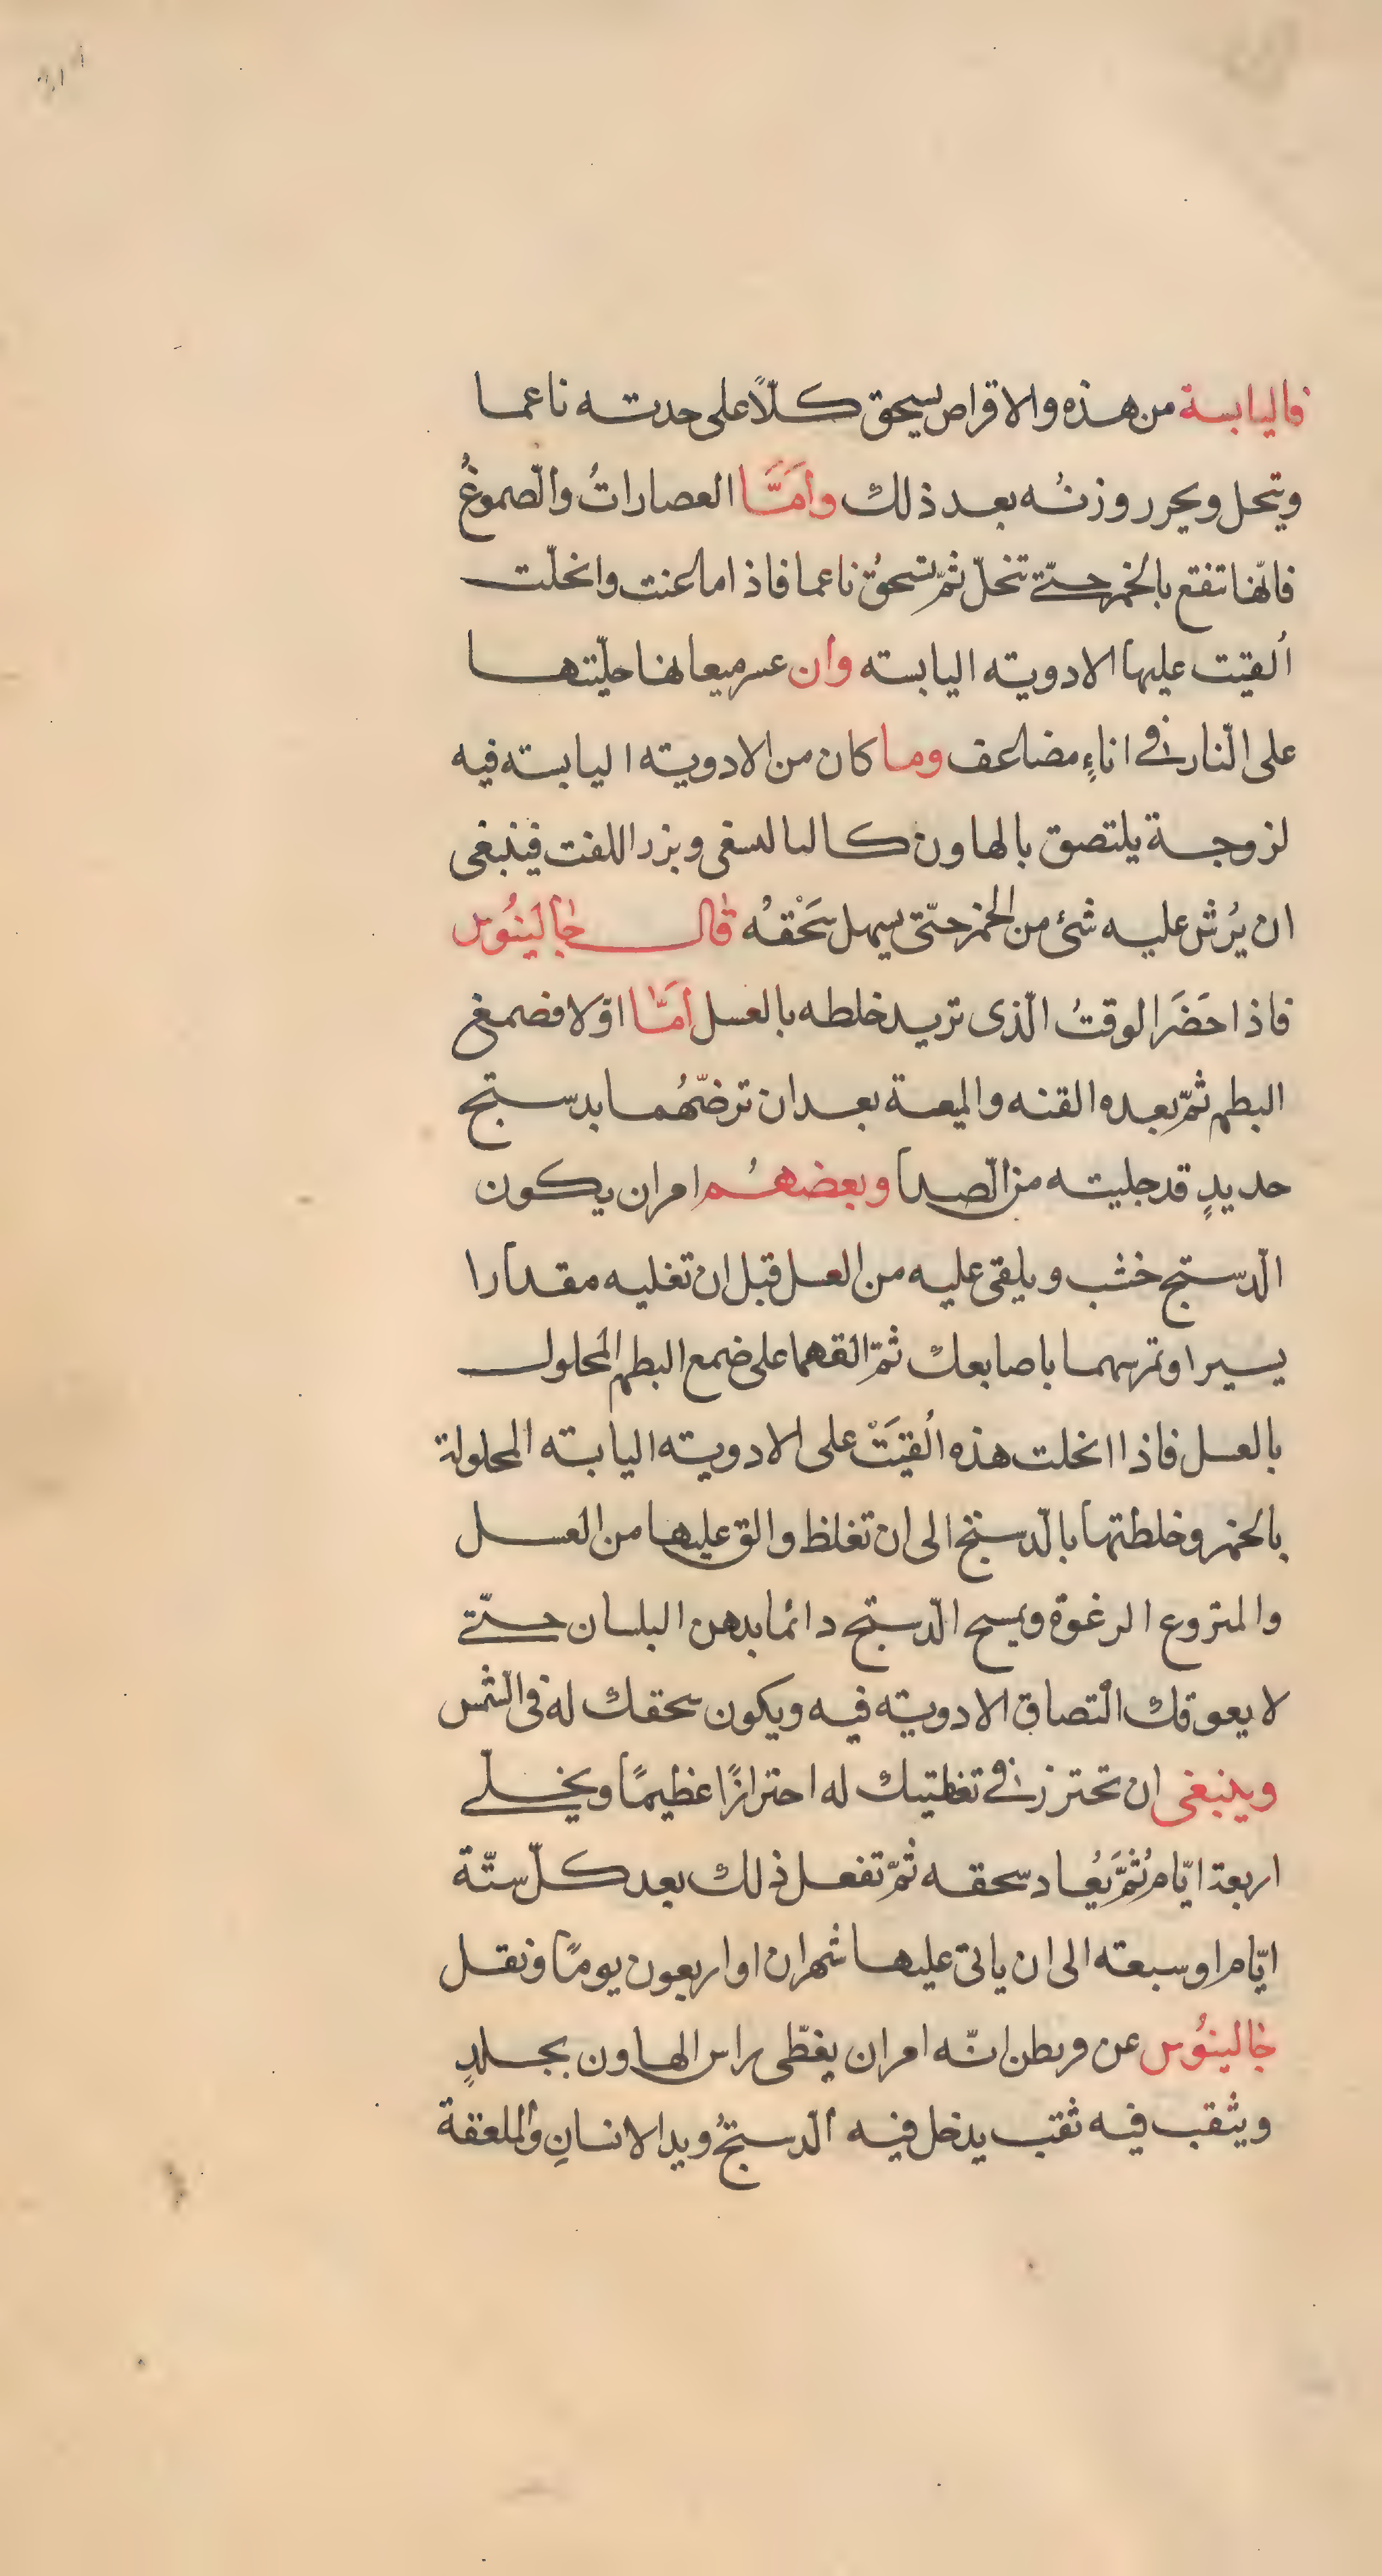 فاليابسة من هذه والاقراص يسحق كلّاً على حدته ناعما
وتحل ويحرر وزنُه بعد ذلك وامَّا العصاراتُ والّصموغُ
فانّها تنقع بالخمر حتّى تنحلّ ثمّ تسحقُ ناعما فاذا ماعنت وانحلّت
اُلقيت عليها الادويته اليابسته وان عسر ميعانها حلّيتها
على النّار فى اناءٍ مضاعف وما كان من الادويته اليابسته فيه
لزوجة يلتصق بالهاون وبزر اللفت فينبغى
ان يُرش عليه شئ من الخمر حتّى يسهل سَحْقهُ قال جالينُوس
فاذا حَضَر الوقتُ الّذى تريد خلطه بالعسل امّا اوّلا فصمغ
البطم ثمّ بعده القنه والميعة بعد ان ترضّهُما بدستج
حديدٍ قد جليته من الّصدا وبعضهُم امر ان يكون
الّدستج خشب ويلقى عليه من العسل قبل ان تغليه مقدارا
يسيرا وتمرسهما باصابعك ثمّ القهما على ضمع البطم المحلول
بالعسل فاذا انحلت هذه اُلقيَتْ على الادويته اليابته المحلولة
بالخمر وخلطتها بالّدستج الى ان تغلظ والق عليها من العسل
والمتزوع الرغوة ويمسح الّدستج دائما بدهن البلسان حتّى
لا يعوقك التصاق الادويته فيه ويكون سحقك له فى الشّمس
وينبغى ان تحترز فى تغطيتك له احترازًا عظيمًا ويخلّى
اربعة ايّام ثُمَّ يُعاد سحقه ثمّ تفعل ذلك بعد كلّ ستّة
ايّام او سبعته الى ان ياتى عليها شهران او اربعون يومًا ونقل
جالينُوس عن انّه امر ان يغطّى راس الهاون بجلدٍ
ويثقب فيه ثقب يدخل فيه الّدستجُ ويد الانسانِ والملعقة